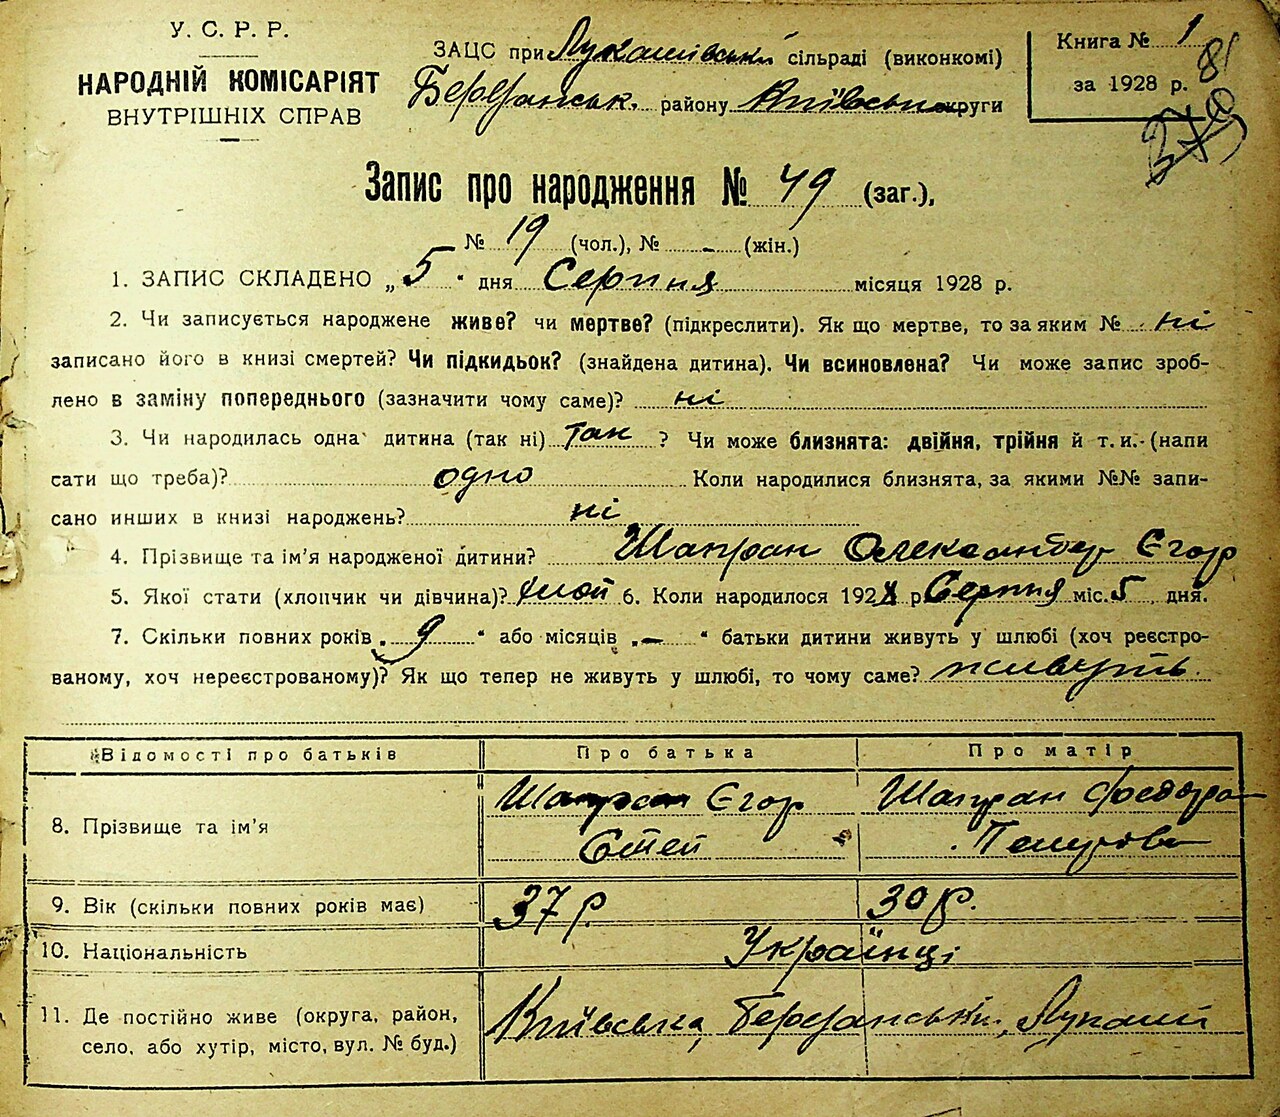 У. С. Р. Р.
НАРОДНІЙ КОМІСАРІЯТ
ВНУТРІШНІХ СПРАВ
ЗАЦС при Лукашівській сільраді (виконкомі)
Березанськ. району Київськ округи
Книга № 1
за 1928 р.
81
Запис про народження № 49 (заг.),
№ 19 (чол.), № - (жін.)
1. ЗАПИС СКЛАДЕНО „ 5 " дня Серпня місяця 1928 р.
2. Чи записується народжене живе? чи мертве? (підкреслити). Як що мертве, то за яким № ні
записано його в книзі смертей? Чи підкидьок? (знайдена дитина). Чи всиновлена? Чи може запис зроб-
лено в заміну попереднього (зазначити чому саме)? ні
3. Чи народилась одна дитина (так ні) так ? Чи може близнята: двійня, трійня й т. и. (напи
сати що треба)? одно Коли народилися близнята, за якими №№ запи-
сано инших в книзі народжень? ні
4. Прізвище та ім'я народженої дитини? Шапран Олександер Єгор
5. Якої стати (хлопчик чи дівчина)? 6. Коли народилося 1928 р Серпня міс. 5 дня.
7. Скільки повних років „ 9 " або місяців „ - " батьки дитини живуть у шлюбі (хоч реєстро-
ваному, хоч нереєстрованому)? Як що тепер не живуть у шлюбі, то чому саме? живуть
Відомості про батьків Про батька Про матір
8. Прізвище та ім'я Шапран Єгор Шапран Федора
9. Вік (скільки повних років має) 37 р 30 р.
10. Національність Українці
11. Де постійно живе (округа, район,
село, або хутір, місто, вул. № буд.) Київська, Березанський, Лукаші